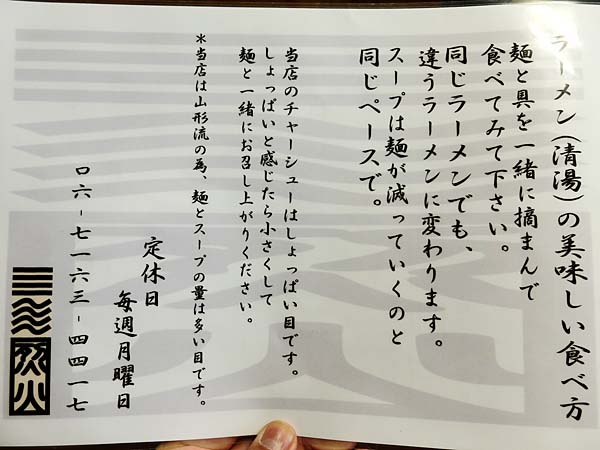 ラーメン(清湯)の美味しい食べ方
麺と具を一緒に摘まんで
食べてみて下さい。
同じラーメンでも、
違うラーメンに変わります。
スープは麺が減っていくのと
同じペースで。
当店のチャーシューはしょっぱい目です。
しょっぱいと感じたら小さくして
麺と一緒にお召し上がりください。
*当店は山形流の為、麺とスープの量は多い目です。
定休日
毎週月曜日
〇六-七一六三-四四一七